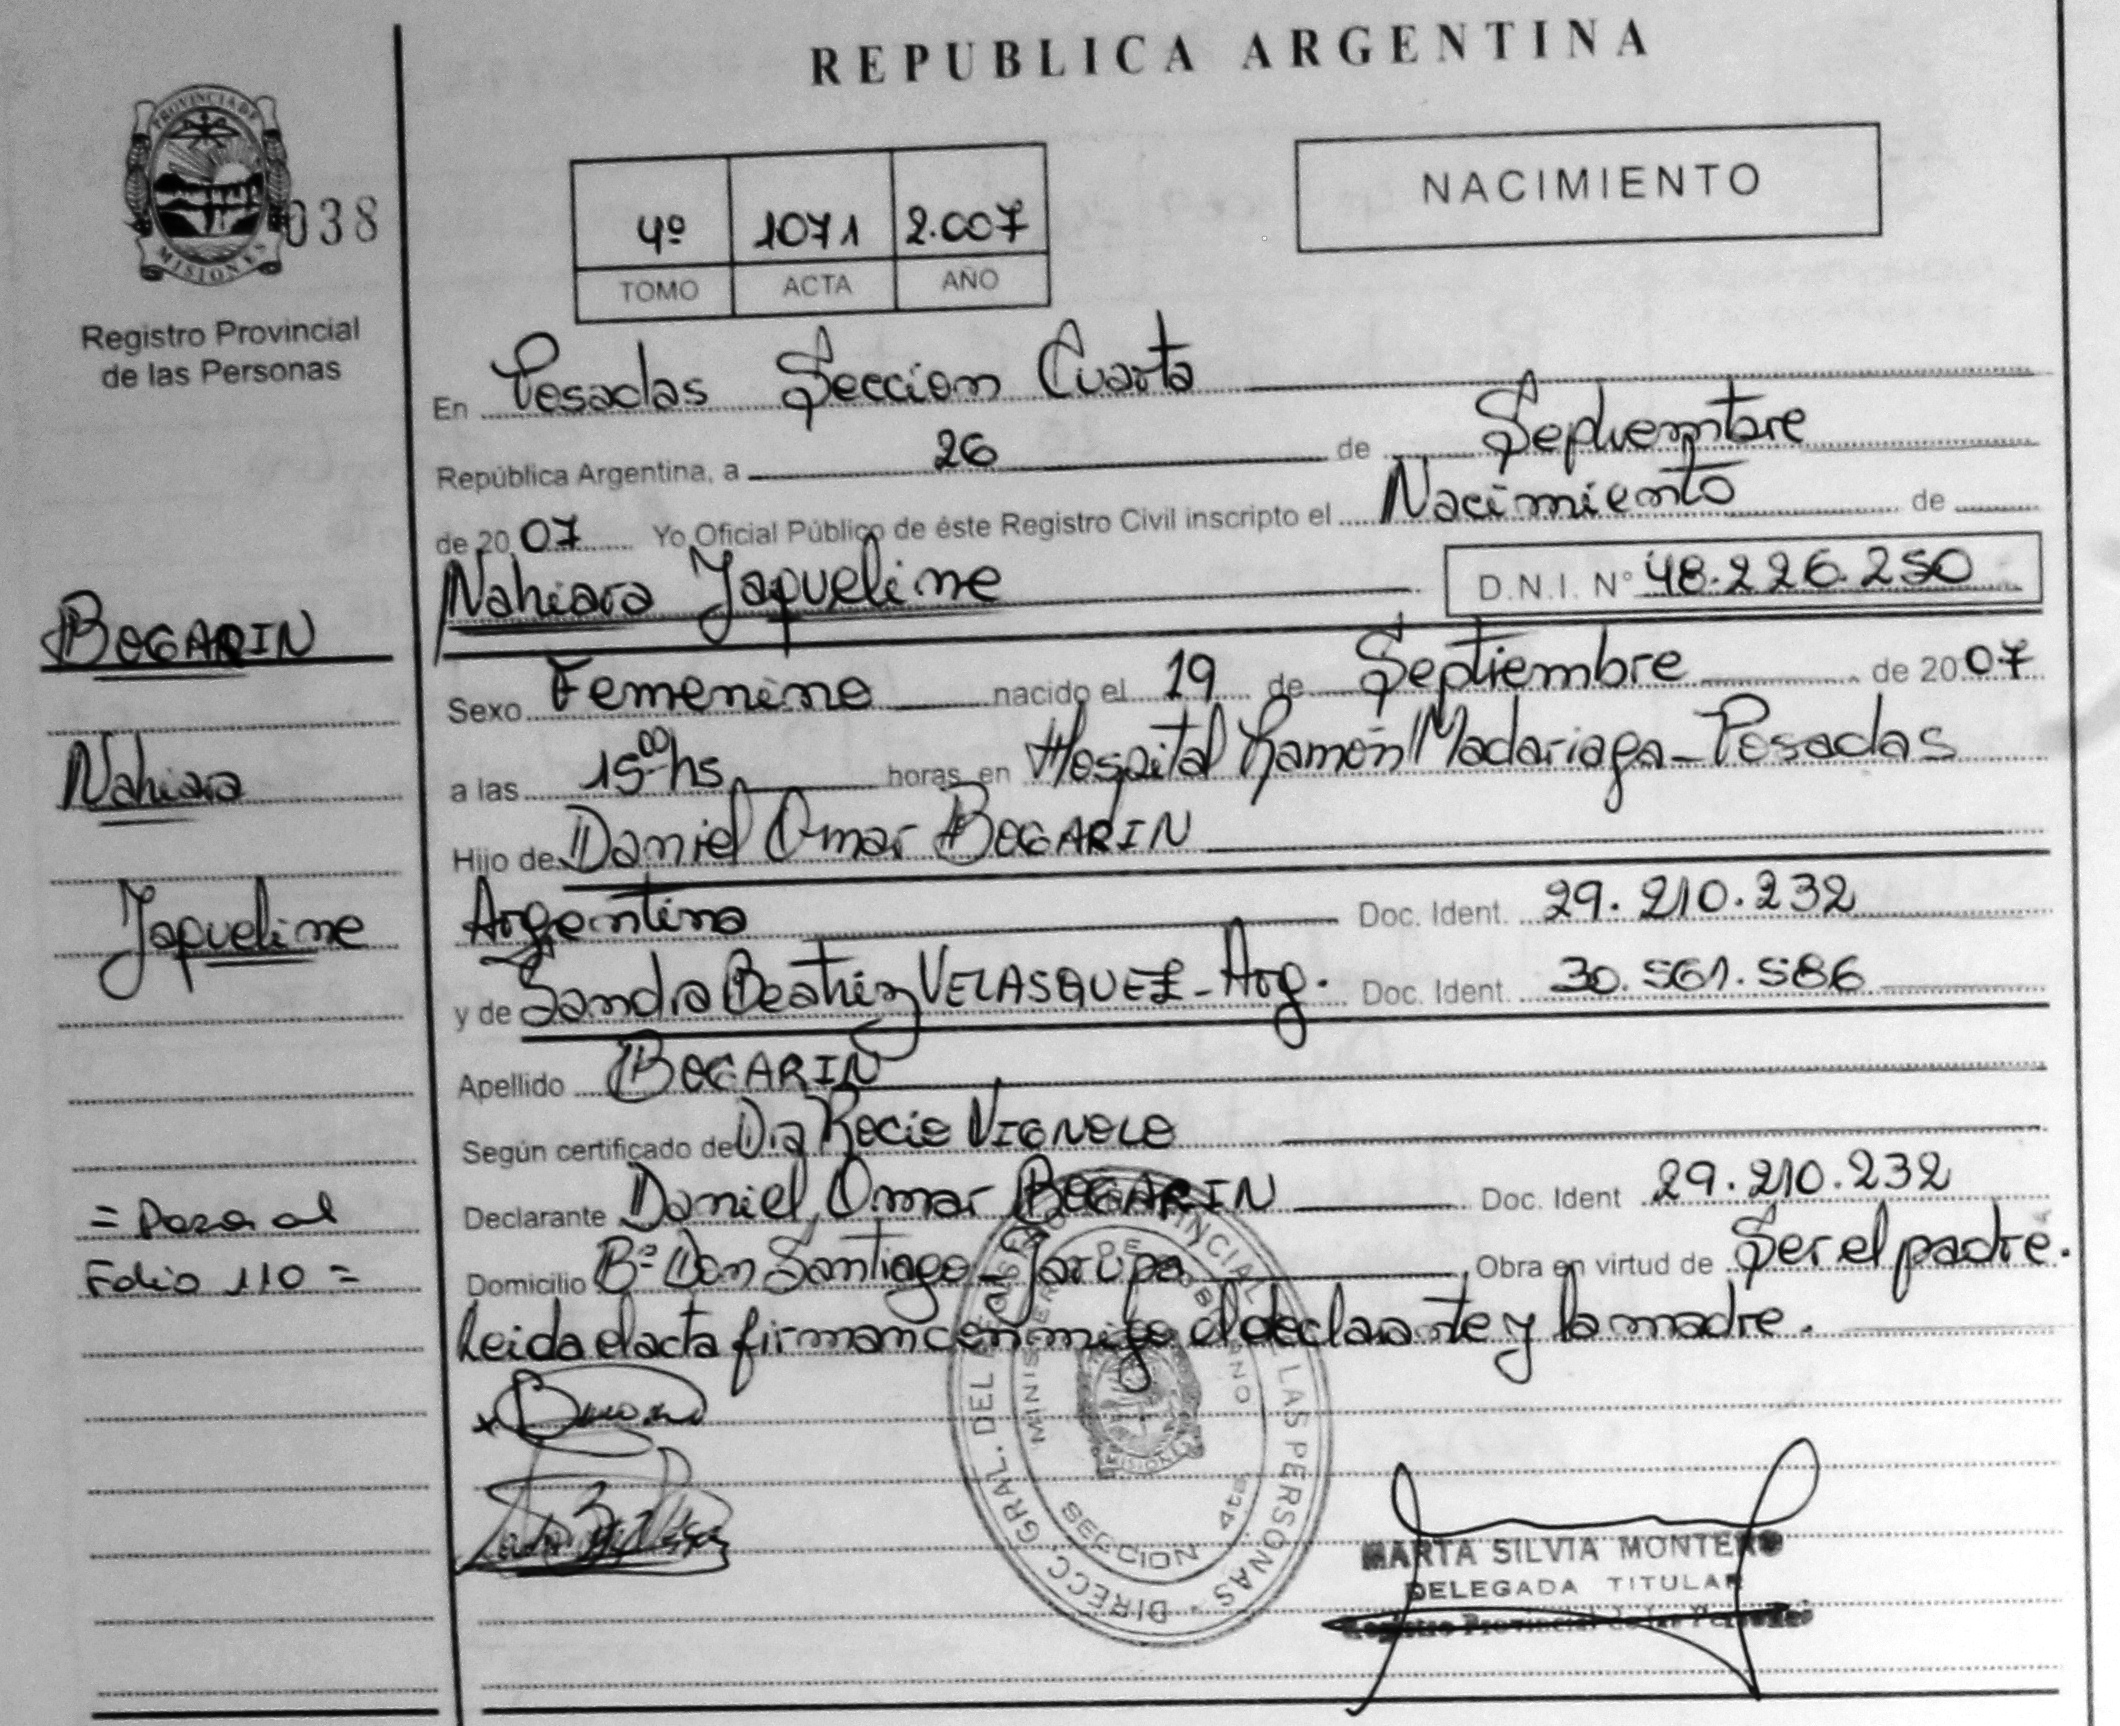 REPUBLICA ARGENTINA
PROVINCIA DE
MISIONES
038
Registro Provincial
de las Personas
4º 1071 2.007
TOMO ACTA AÑO
NACIMIENTO
En Posadas Seccion Cuarta
República Argentina, a 26 de Septiembre
de 2007 Yo Oficial Público de éste Registro Civil inscripto el Nacimiento de
Nahiara Jaqueline D.N.I. Nº 48.226.250
BOGARIN
Nahiara
Jaqueline
Sexo Femenino nacido el 19 de Septiembre de 2007
a las 15 00 hs horas en Hospital Ramón Madariaga - Posadas
Hijo de Daniel Omar BOGARIN
Argentino Doc. Ident. 29.210.232
y de Sandra Beatriz VELASQUEZ - Arg. Doc. Ident. 30.561.586
Apellido BOGARIN
Según certificado de Dra Rocio VIGNOLO
Declarante Daniel Omar BOGARIN Doc. Ident 29.210.232
Domicilio Bº Don Santiago - Garupa Obra en virtud de Ser el padre.
Leida el acta firman conmigo el declarante y la madre.
= Pasa al
Folio 110 =
DIRECC. GRAL. DEL REG. PROVINCIAL DE LAS PERSONAS
MINISTERIO DE GOBIERNO
MISIONES
SECCION 4ta
MARTA SILVIA MONTERO
DELEGADA TITULAR
Registro Provincial de las Personas